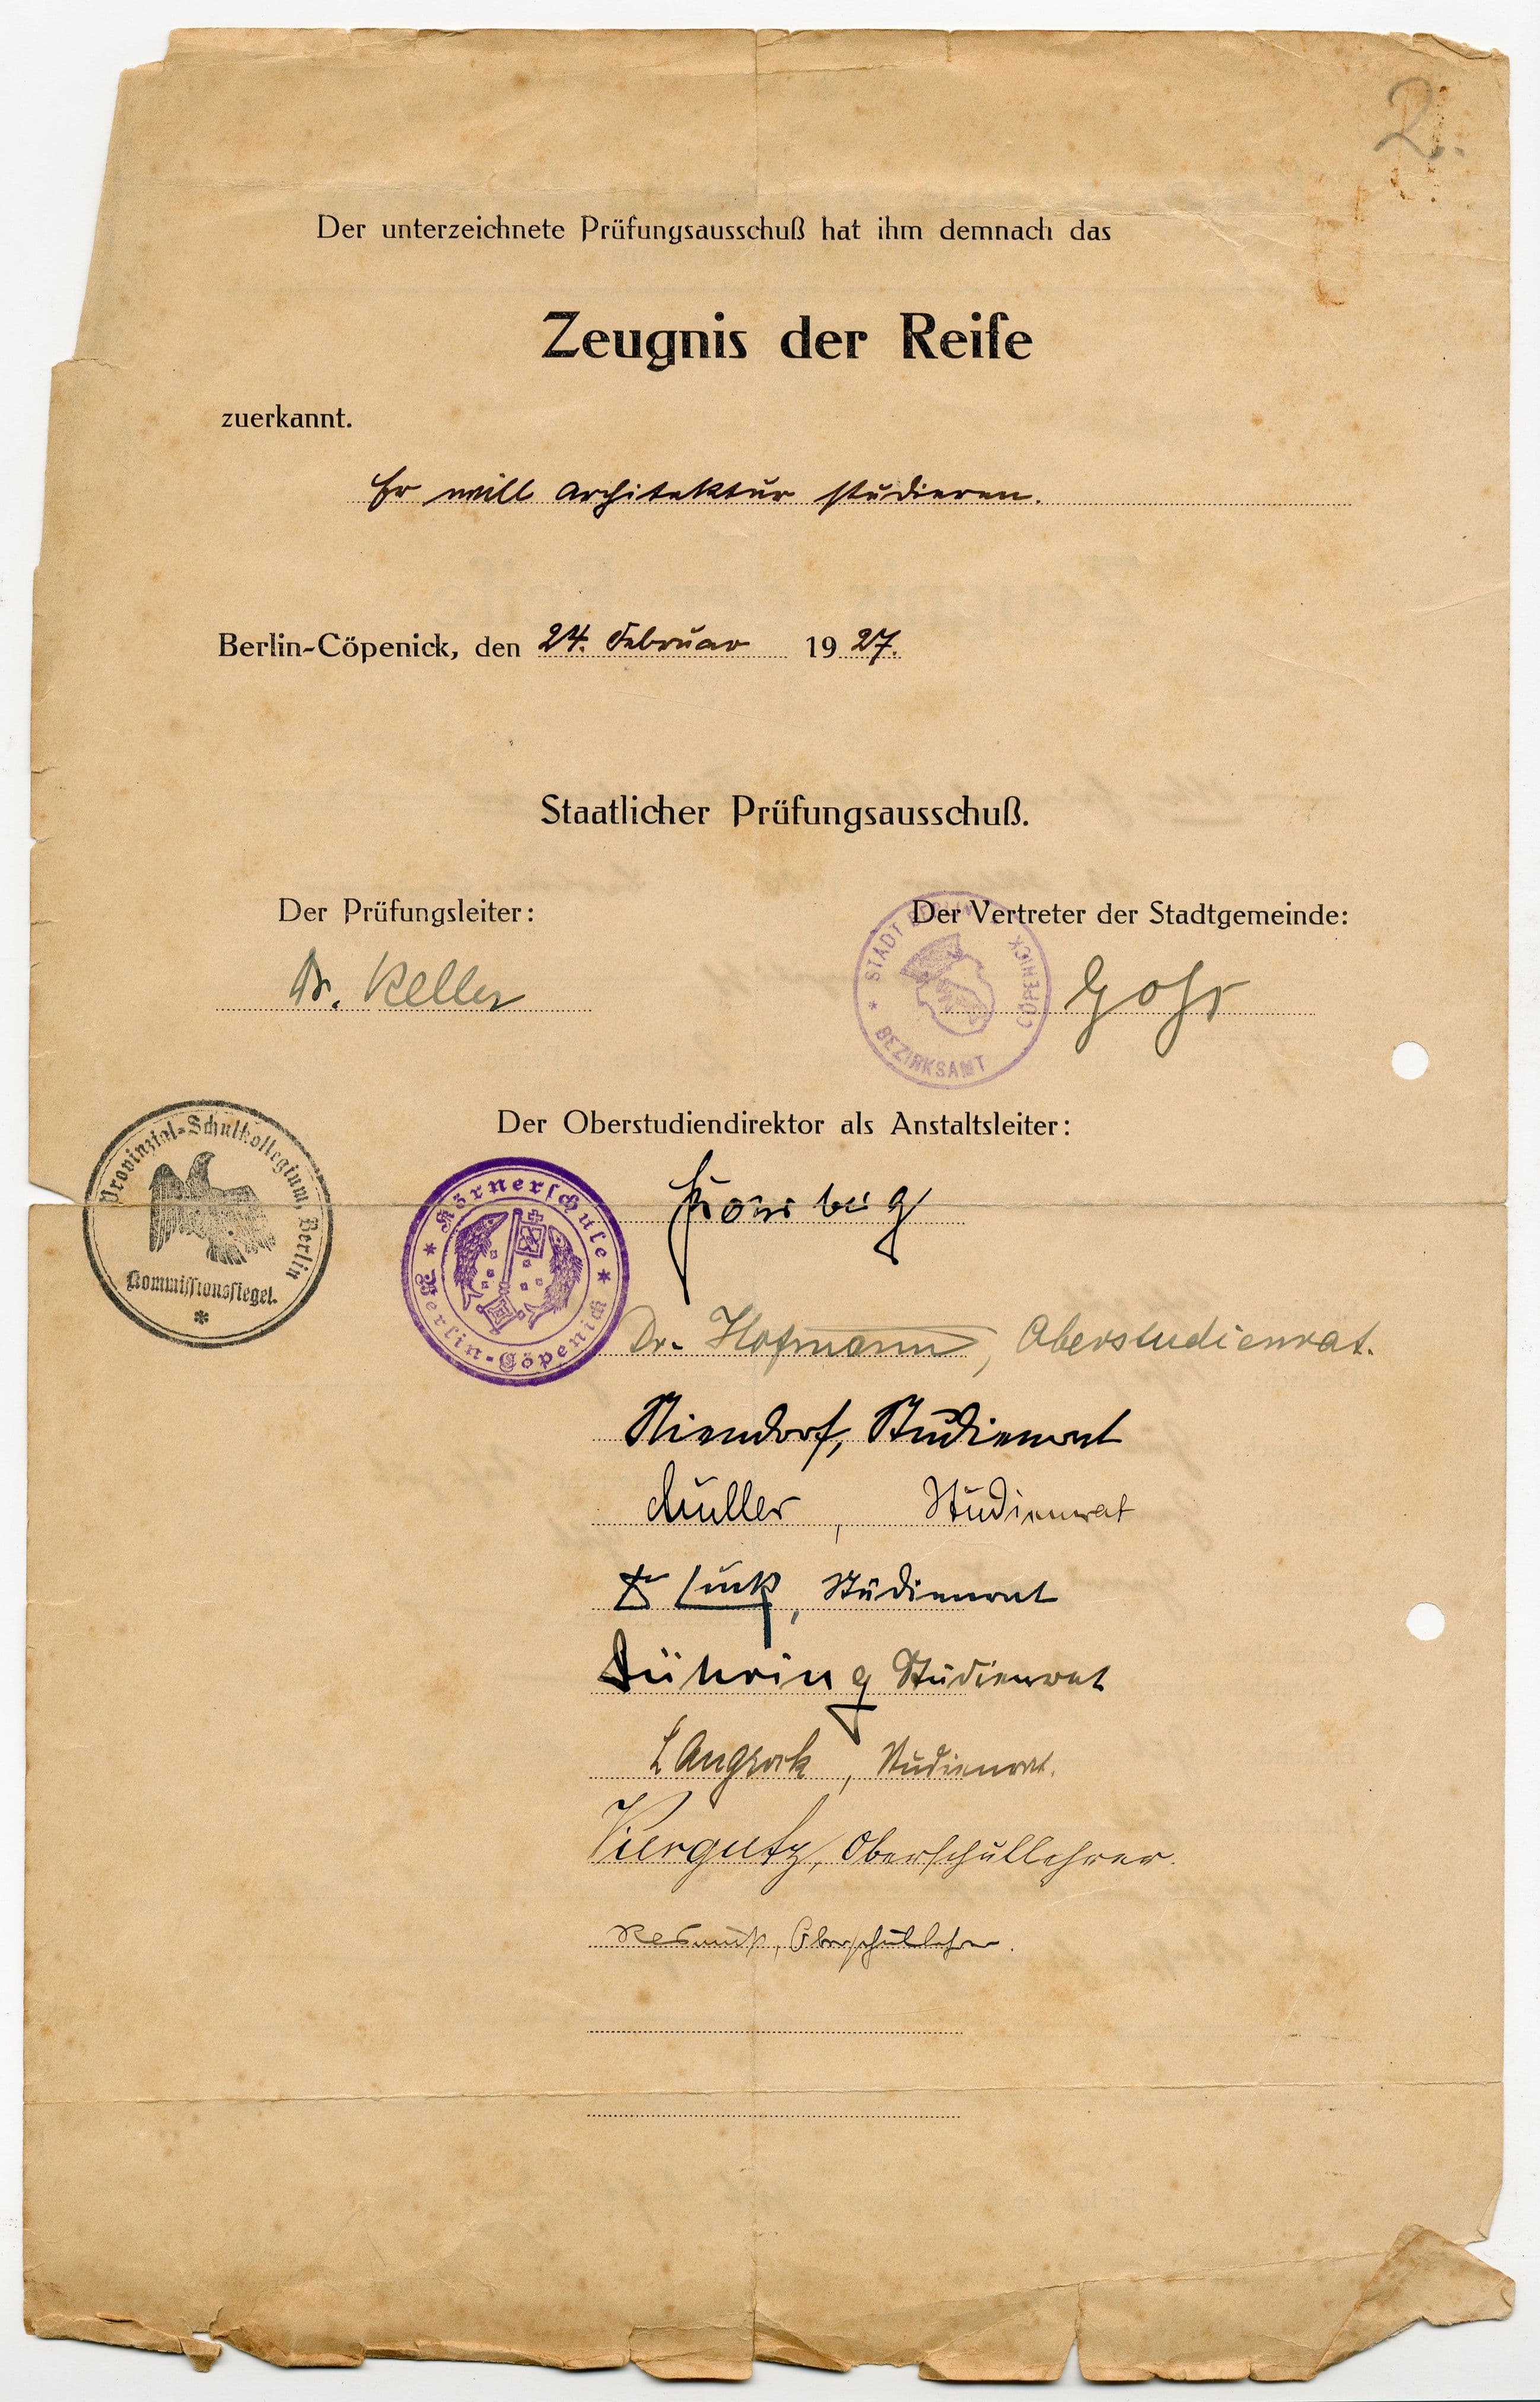 2.
Der unterzeichnete Prüfungsausschuß hat ihm demnach das
Zeugnis der Reife
zuerkannt.
Er will Architektur studieren.
Berlin-Cöpenick, den 24. Februar 1927.
Staatlicher Prüfungsausschuß.
Der Prüfungsleiter:
Der Vertreter der Stadtgemeinde:
Dr. Keller
Gohr
* STADT BERLIN CÖPENICK
BEZIRKSAMT
Der Oberstudiendirektor als Anstaltsleiter:
Provinzial-Schulkollegium, Berlin
Kommissionssiegel.
* Körnerschule *
Berlin-Cöpenick
Dr. Hofmann, Oberstudienrat.
Niendorf, Studienrat
Müller, Studienrat
Studienrat
Dühring Studienrat
Langrock, Studienrat.
Viergutz, Oberschullehrer.
Oberschullehrer.